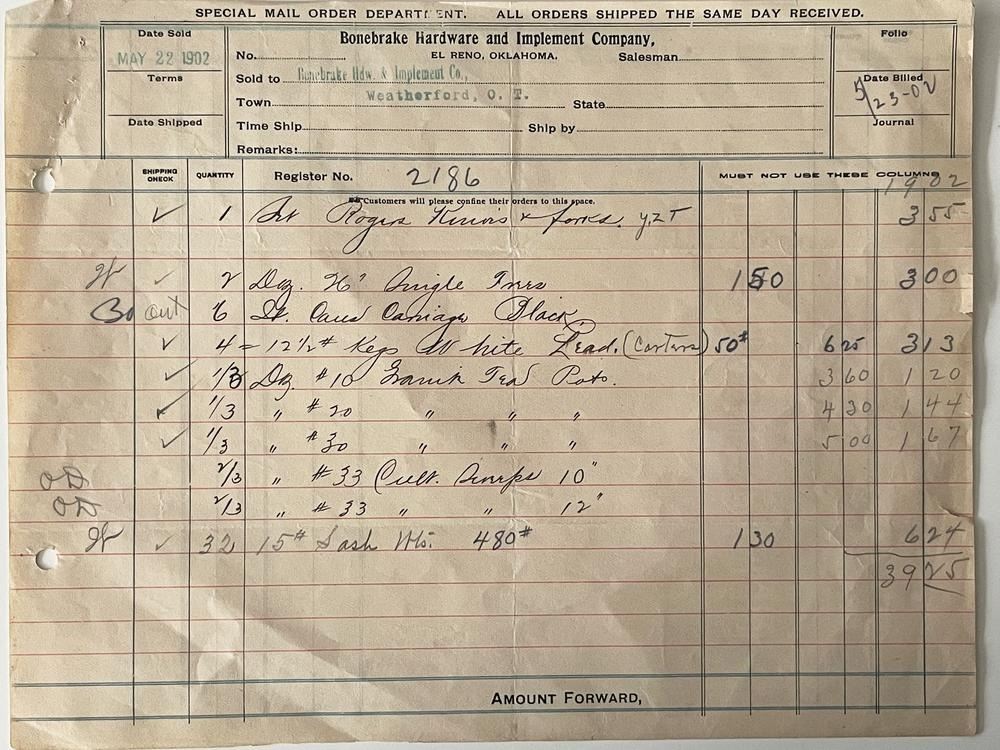 SPECIAL MAIL ORDER DEPARTMENT. ALL ORDERS SHIPPED THE SAME DAY RECEIVED.
Date Sold
MAY 22 1902
Terms
Date Shipped
Bonebrake Hardware and Implement Company,
No. EL RENO, OKLAHOMA. Salesman
Sold to Bonebrake Hdw. & Implement Co.,
Town Weatherford, O. T. State
Time Ship Ship by
Remarks:
Folio
Date Billed
5/23-02
Journal
SHIPPING CHECK QUANTITY Register No. 2186 MUST NOT USE THESE COLUMNS
1902
Customers will please confine their orders to this space.
✓ 1 Set Rogers Knives & forks. 3 55
W ✓ 2 Doz. 26" Single Trees 1 50 3 00
out 6 Carriage Black
✓ 4 = 12½# Kegs White Lead. (Carters) 50# 6 25 3 13
✓ 1/3 Doz #10 Granit Tea Pots. 3 60 1 20
✓ 1/3 " #20 " " " 4 30 1 44
✓ 1/3 " #30 " " " 5 00 1 67
2/3 " #33 Cult. Sweeps 10"
2/3 " #33 " " 12"
W ✓ 32 15# Sash Wts. 480# 1 30 6 24
39 25
AMOUNT FORWARD,